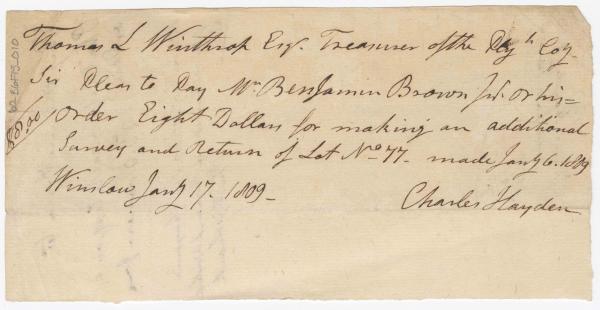 Thomas L Winthrop Esqr. Treasurer of the Ply.h Coy.
Sir Pleas to Pay Mr. Benjamin Brown Jnr. or his=
$8.00
order Eight Dollars for making an additional
Survey and Return of Lot No. 77. made Jany 6. 1809
Winslow Jany 17. 1809_
Charles Hayden